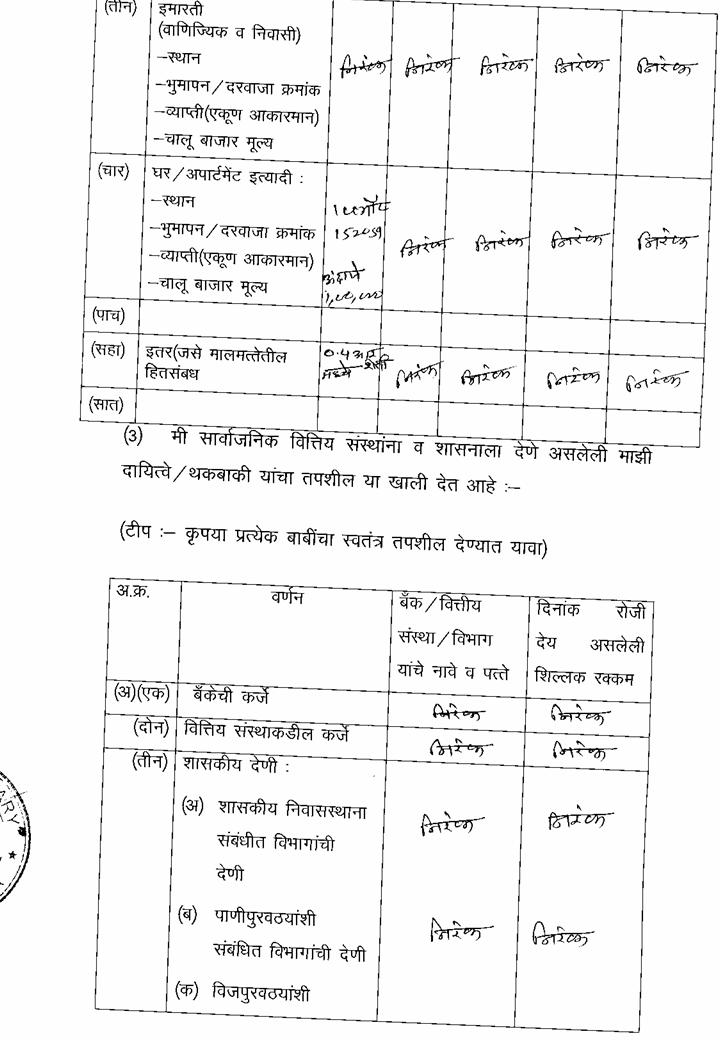 (तीन) इमारती
(वाणिज्यिक व निवासी)
–स्थान
–भुमापन/दरवाजा क्रमांक
–व्याप्ती(एकूण आकारमान)
–चालू बाजार मूल्य
निरंक निरंक निरंक निरंक निरंक
(चार) घर/अपार्टमेंट इत्यादी :
–स्थान
–भुमापन/दरवाजा क्रमांक
–व्याप्ती(एकूण आकारमान)
–चालू बाजार मूल्य
अंदाजे
निरंक निरंक निरंक निरंक
(पाच)
(सहा) इतर(जसे मालमत्तेतील
हितसंबध
निरंक निरंक निरंक निरंक
(सात)
(3) मी सार्वाजनिक वित्तिय संस्थांना व शासनाला देणे असलेली माझी
दायित्वे/थकबाकी यांचा तपशील या खाली देत आहे :–
(टीप :– कृपया प्रत्येक बाबींचा स्वतंत्र तपशील देण्यात यावा)
अ.क्र. वर्णन बँक/वित्तीय दिनांक रोजी
संस्था/विभाग देय असलेली
यांचे नावे व पत्ते शिल्लक रक्कम
(अ)(एक) बँकेची कर्जे निरंक निरंक
(दोन) वित्तिय संस्थाकडील कर्जे निरंक निरंक
(तीन) शासकीय देणी :
(अ) शासकीय निवासस्थाना निरंक निरंक
संबंधीत विभागांची
देणी
(ब) पाणीपुरवठयांशी निरंक निरंक
संबंधित विभागांची देणी
(क) विजपुरवठयांशी